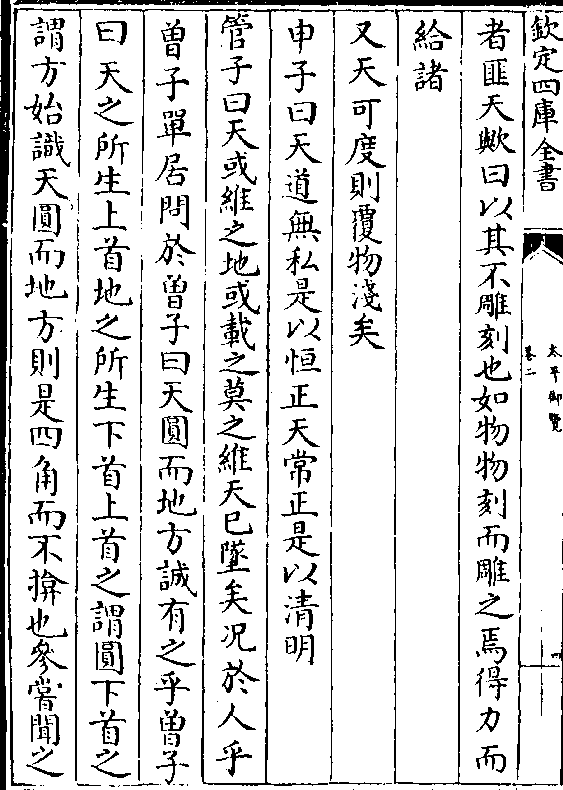 欽定四庫全書
太平御覽
卷二
者匪天歟曰以其不雕刻也如物物刻而雕之焉得力而
給諸
又天可度則覆物淺矣
申子曰天道無私是以恒正天常正是以清明
管子曰天或維之地或載之莫之維天已墜矣况於人乎
曾子單居問於曾子曰天圓而地方誠有之乎曾子
曰天之所生上首地之所生下首上首之謂圓下首之
謂方始識天圓而地方則是四角而不揜也參嘗聞之